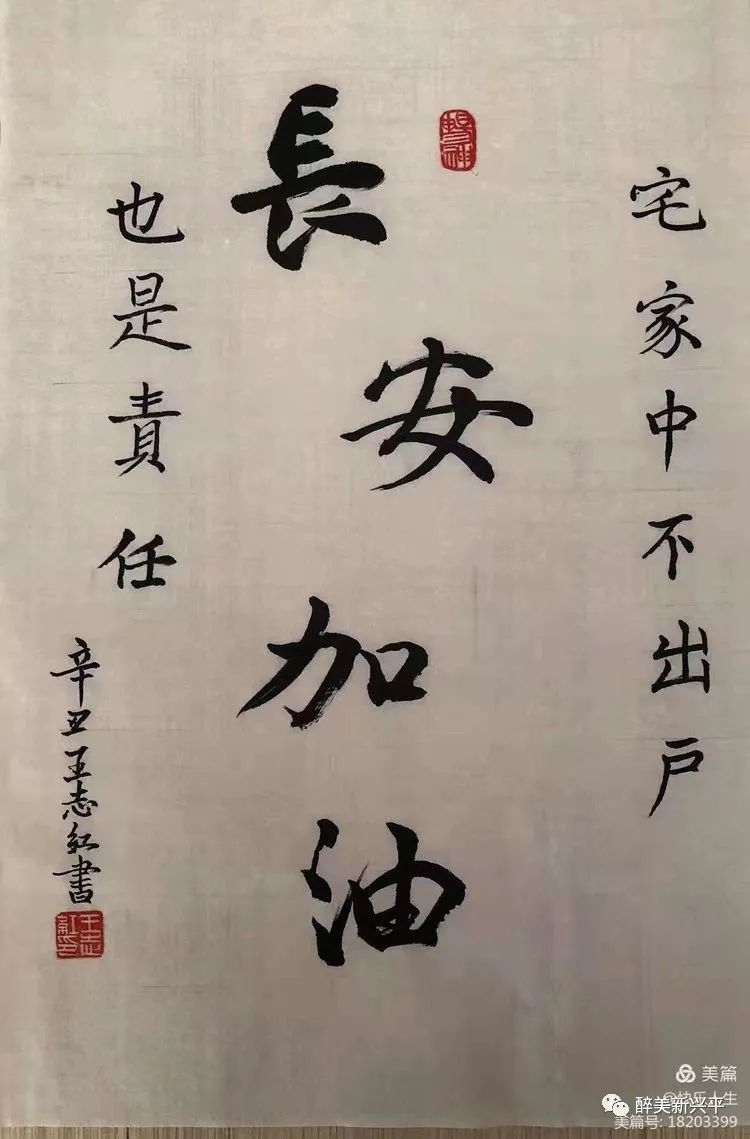 宅家中不出戸
長安加油
也是責任
辛丑王志紅書
王志紅印
美篇
@快乐人生
醉美新兴平
美篇号: 18203399